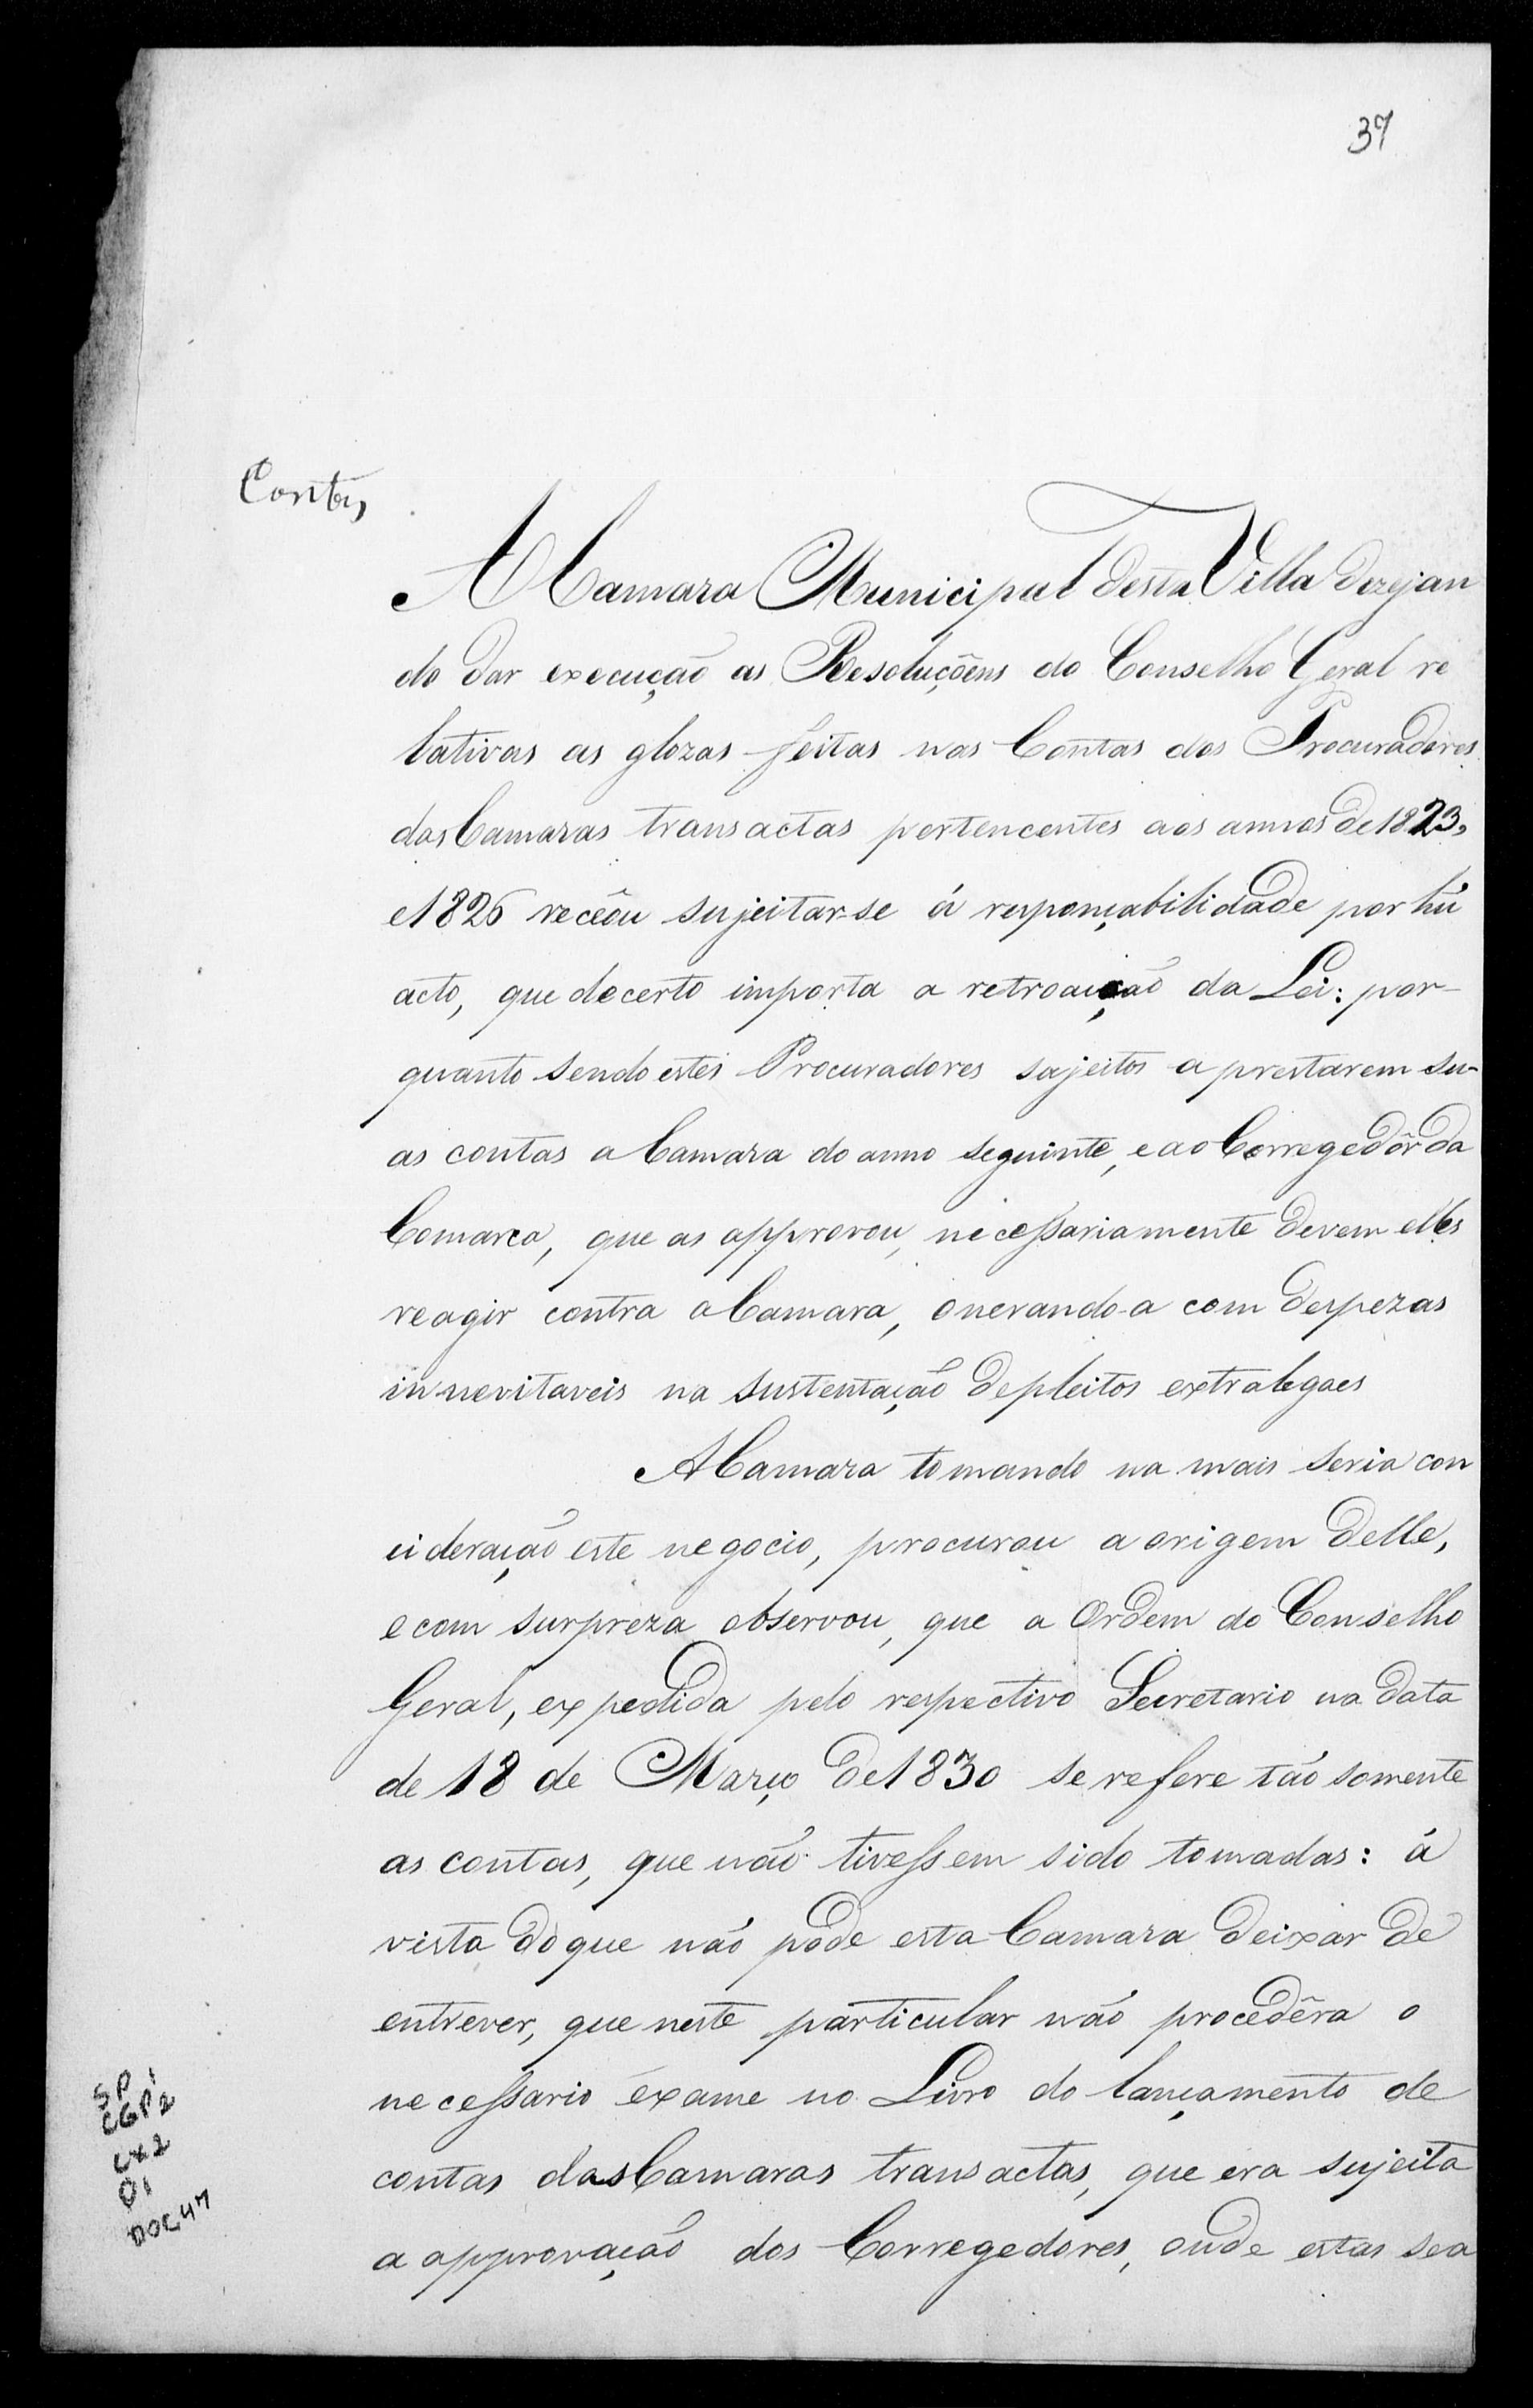 37
Contas
A Camara Municipal desta Villa dezejan
do dar execução as Resoluçõens do Conselho Geral re
lativas as glozas feitas nas Contas dos Procuradores
das Camaras transactas pertencentes aos annos de 1823,
e 1826 recêou sujeitar-se á responçabilidade por hũ
acto, que de certo importa a retroação da Lei: por-
quanto sendo estes Procuradores sujeitos a prestarem su-
as contas a Camara do anno seguinte, e ao Corregedôr da
Comarca, que as approvou, necessariamente devem elles
reagir contra a Camara, onerando-a com despezas
innevitaveis na sustentação de pleitos extralegaes
A Camara tomando na mais seria con
cideração este negocio, procurou a origem delle,
e com surpreza observou, que a Ordem do Conselho
Geral, expedida pelo respectivo Secretario na data
de 18 de Março de 1830 se refere tão somente
as contas, que não tivessem sido tomadas: á
vista do que não pode esta Camara deixar de
entrever, que neste particular não procedêra o
necessario exame no Livro do lançamento de
contas das Camaras transactas, que era sujeita
a approvação dos Corregedores, onde estas sea
SP 1
CGP2
CX2
01
DOC47